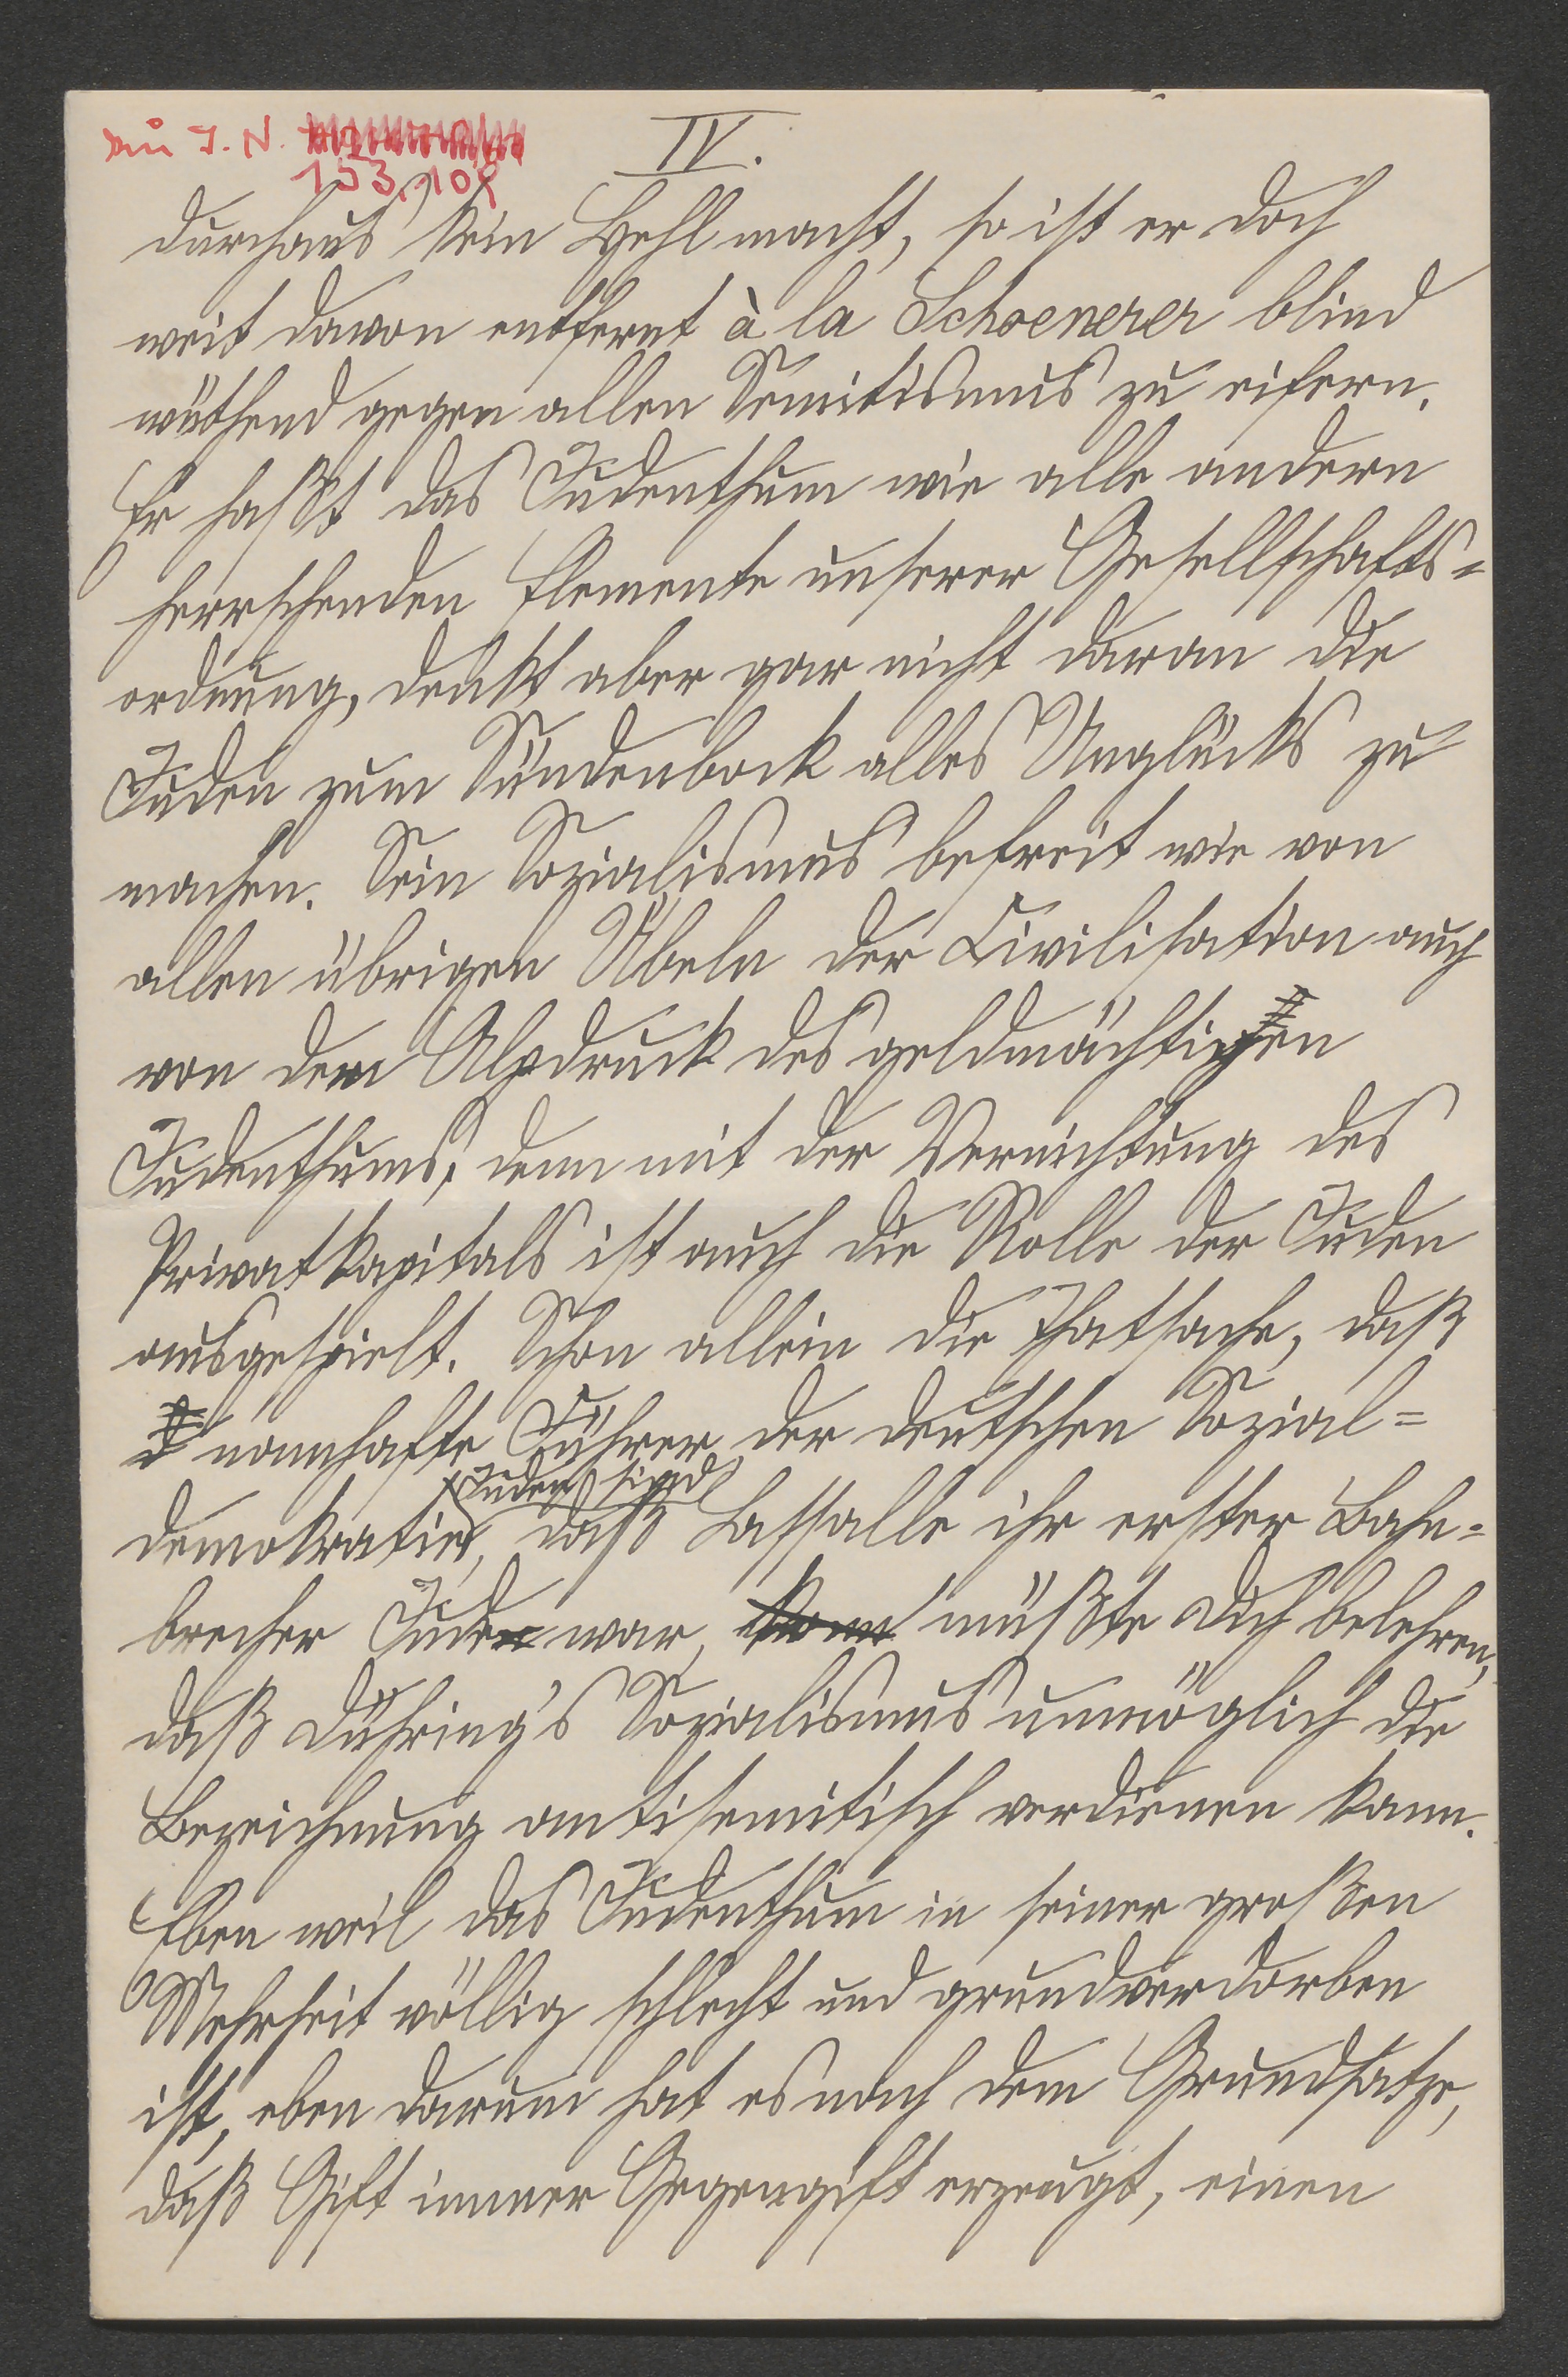 zu I. N.
153.108
IV.
durchaus kein Hehl macht, so ist er doch
weit davon entfernt à la Schoenerer blind
wüthend gegen allen Semitismus zu eifern.
Er haßt das Judenthum wie alle andern
herrschenden Elemente unserer Gesellschafts=
ordnung, denkt aber gar nicht daran die
Juden zum Sündenbock alles Unglücks zu
machen. Sein Sozialismus befreit wie von
allen übrigen Übeln der Civilisation auch
von dem Alpdruck des geldmächtigen
Judenthums, denn mit der Vernichtung des
Privatkapitals ist auch die Rolle der Juden
ausgespielt. Schon allein die Thatsache, daß
namhafte Führer der deutschen Sozial=
Juden sind
demokratie, daß Lassalle ihr erster Bahn=
brecher Jude war, müßte Dich belehren,
daß Dühring's Sozialismus unmöglich die
Bezeichnung antisemitisch verdienen kann.
Eben weil das Judenthum in seiner großen
Mehrheit völlig schlecht und grundverdorben
ist, eben darum hat es nach dem Grundsatze,
daß Gift immer Gegengift erzeugt, einen